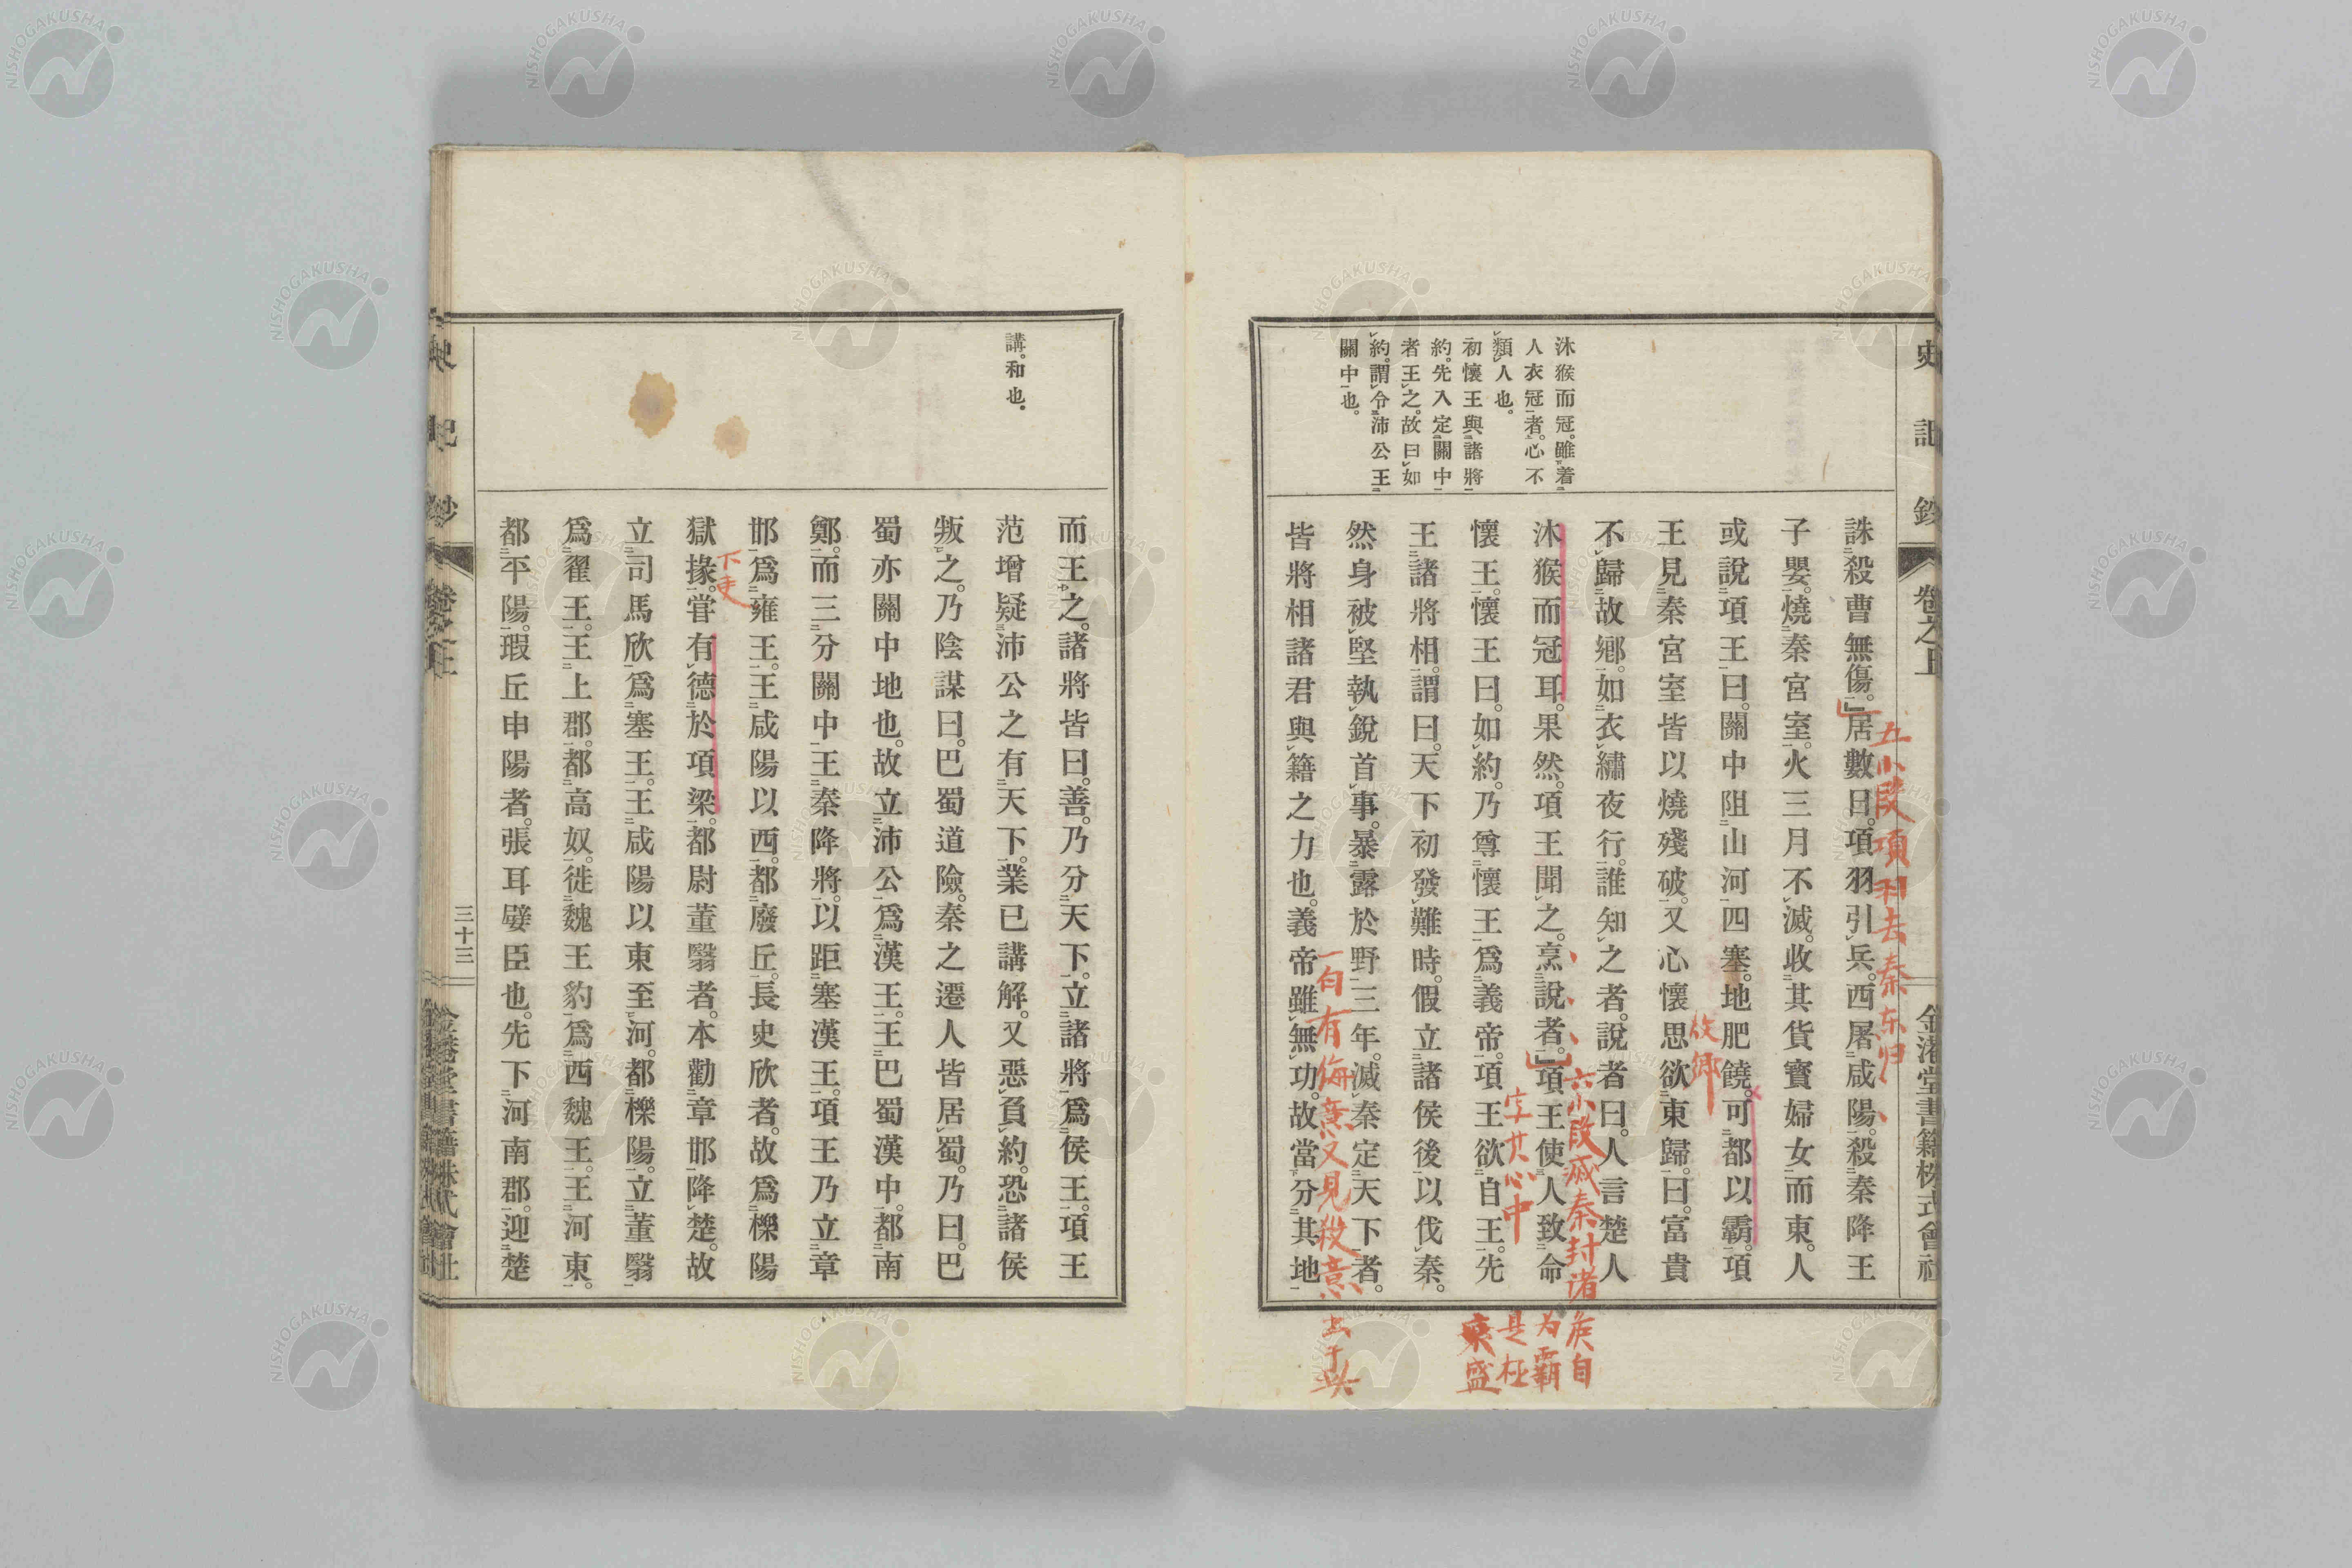 史記鈔
卷之上
金港堂書籍株式會社
沐猴而冠。雖着
人衣冠者。心不
類人也。
初懷王與諸將
約。先入定關中
者王之。故曰如
約。謂令沛公王
關中也。
誅殺曹無傷。」居數日。項羽引兵。西屠咸陽。殺秦降王
子嬰。燒秦宮室。火三月不滅。收其貨寶婦女而東。人
或說項王曰。關中阻山河四塞。地肥饒。可都以霸。項
王見秦宮室皆以燒殘破。又心懷思欲東歸。曰。富貴
不歸故鄉。如衣繡夜行。誰知之者。說者曰。人言楚人
沐猴而冠耳。果然。項王聞之。烹說者。」項王使人致命
懷王。懷王曰。如約。乃尊懷王爲義帝。項王欲自王。先
王諸將相。謂曰。天下初發難時。假立諸侯後以伐秦。
然身被堅執銳首事。暴露於野三年。滅秦定天下者。
皆將相諸君與籍之力也。義帝雖無功。故當分其地
五小段項羽去秦东归
故鄉
六小段滅秦封诸侯自
为霸
是極
盛
字其心中
一句有侮意又見殺意
講。和也。
而王之。諸將皆曰。善。乃分天下。立諸將爲侯王。項王
范增疑沛公之有天下。業已講解。又惡負約。恐諸侯
叛之。乃陰謀曰。巴蜀道險。秦之遷人皆居蜀。乃曰。巴
蜀亦關中地也。故立沛公爲漢王。王巴蜀漢中。都南
鄭。而三分關中。王秦降將。以距塞漢王。項王乃立章
邯爲雍王。王咸陽以西。都廢丘。長史欣者。故爲櫟陽
獄掾。嘗有德於項梁。都尉董翳者。本勸章邯降楚。故
立司馬欣爲塞王。王咸陽以東至河。都櫟陽。立董翳
爲翟王。王上郡。都高奴。徙魏王豹爲西魏王。王河東。
都平陽。瑕丘申陽者。張耳嬖臣也。先下河南郡。迎楚
下吏
史記鈔
卷之上
三十三
金港堂書籍株式會社
NISHOGAKUSHA